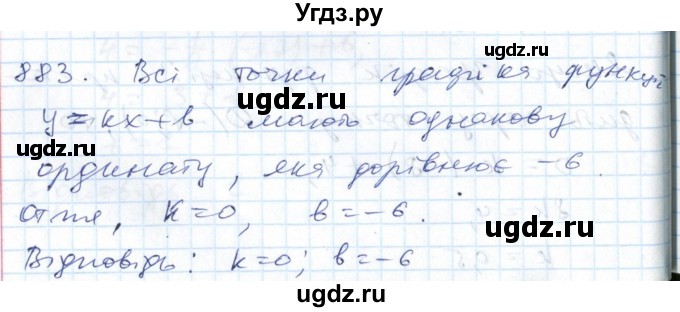 Угдз.ру
883. Всі точки графіка функції
ugdz.ru
y=kx+b мають однакову
ugdz.ru ugdz.ru
ординату, яка дорівнює -6.
ugdz.ru
Отже, k=0, b=-6.
ugdz.ru
Відповідь: k=0; b=-6
ugdz.ru